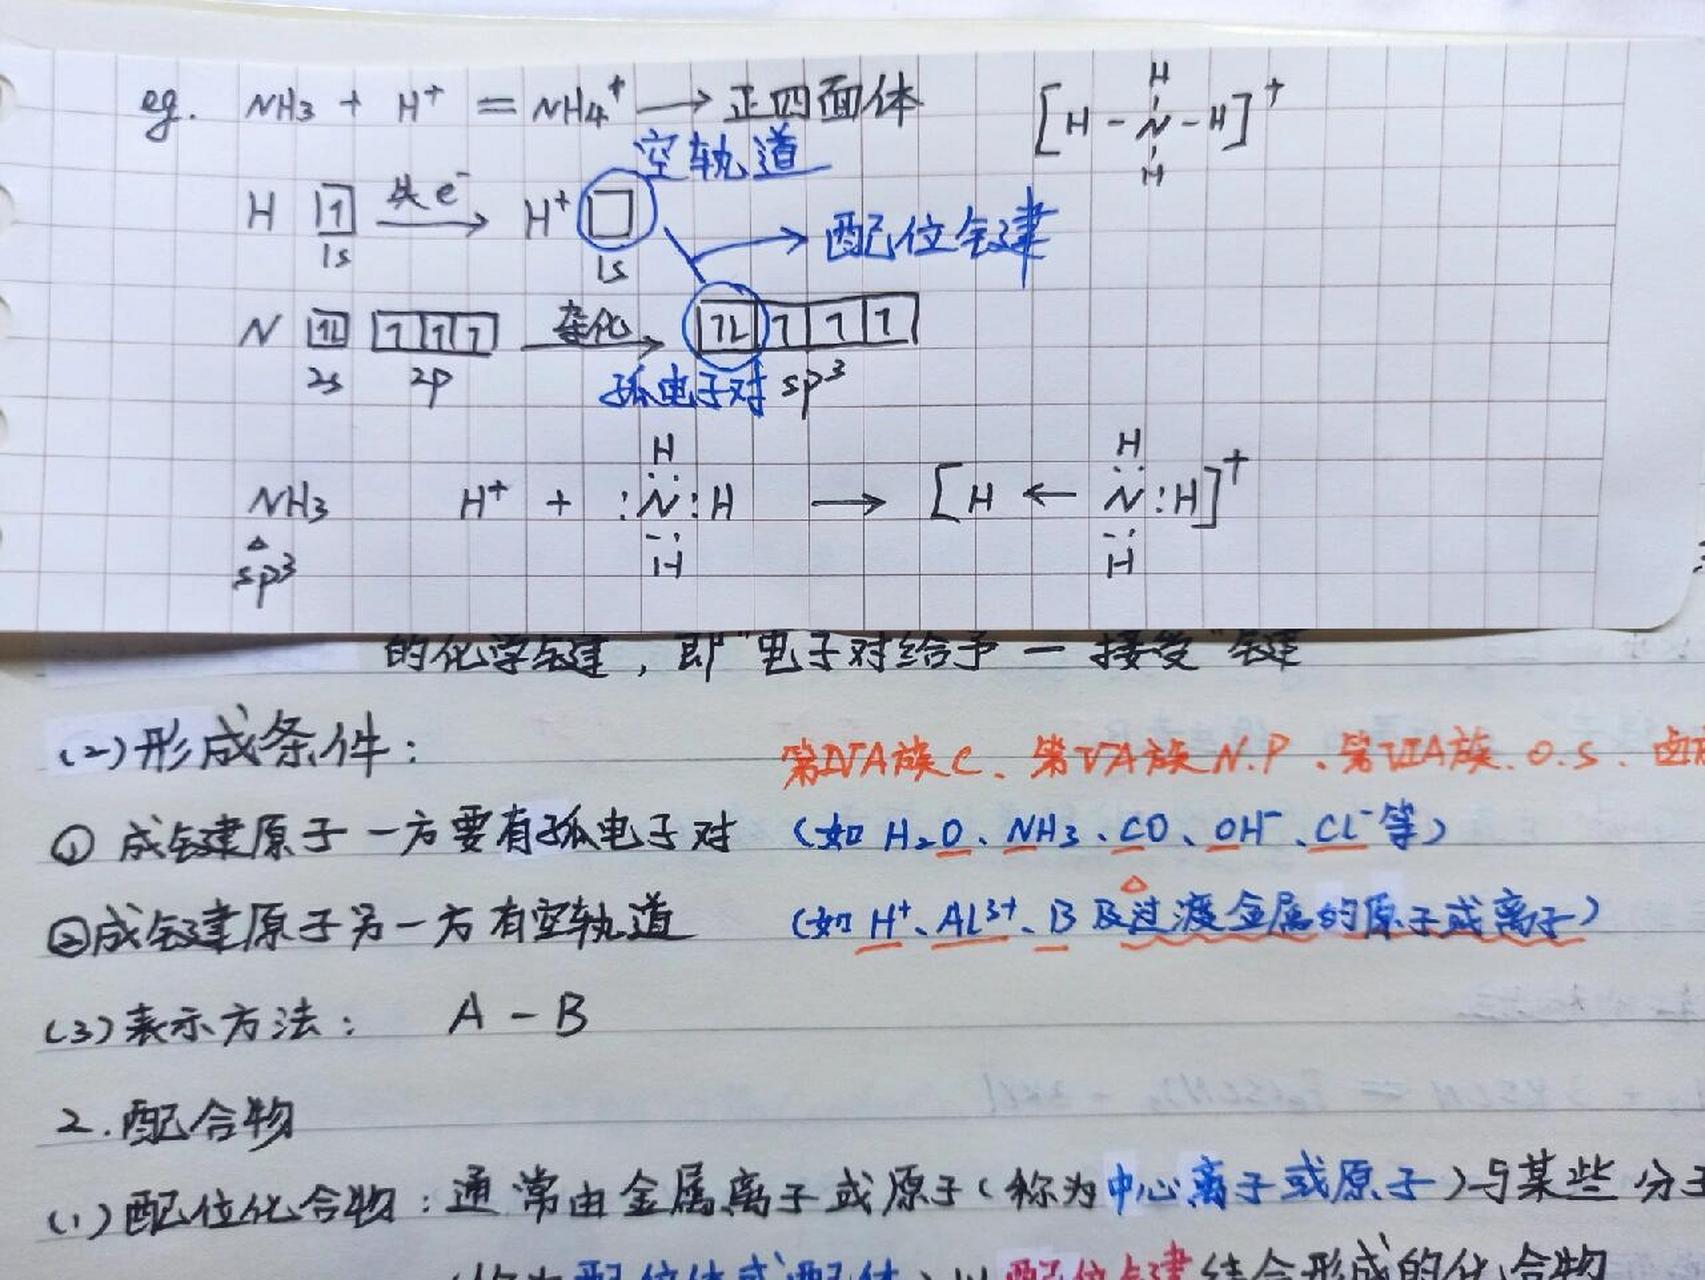 eg. NH3 + H⁺ = NH4⁺ → 正四面体 [H-N-H]⁺
H
H
空轨道
H 1 失e⁻ H⁺ → 配位键
1s 1s
N 1L 1 1 1 杂化 1L 1 1 1
2s 2p 孤电子对 sp³
H H
NH3 H⁺ + :N:H → [H ← N:H]⁺
sp³ H H
的化学键，即"电子对给予一接受"键
(2)形成条件： 第IVA族C、第VA族N.P、第VIA族.O.S.
①成键原子一方要有孤电子对 (如H₂O、NH₃、CO、OH⁻、Cl⁻等)
②成键原子另一方有空轨道 (如H⁺、Al³⁺、B及过渡金属的原子或离子)
(3)表示方法： A-B
2.配合物
(1)配位化合物：通常由金属离子或原子(称为中心离子或原子)与某些分子
(称为配位体或配体)以配位键结合形成的化合物